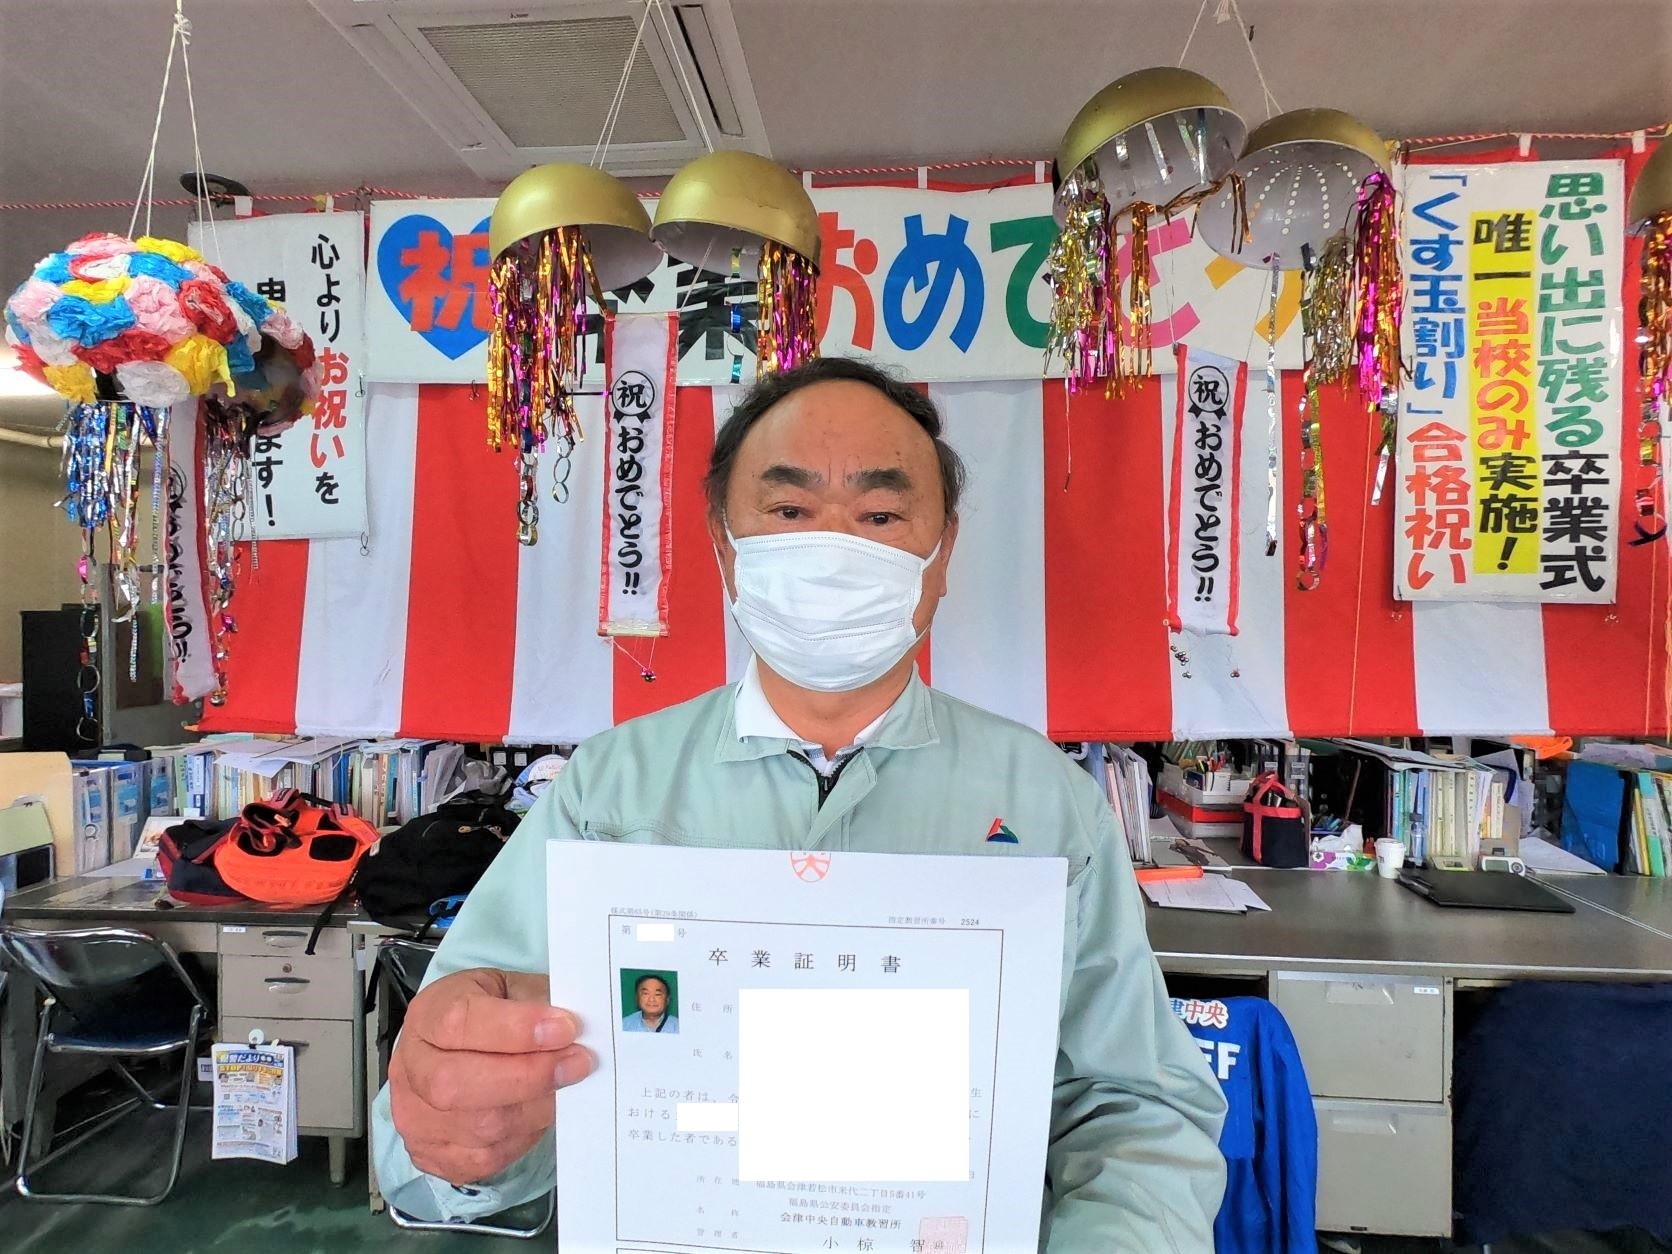 心より
お祝いを
ます!
祝
おめでとう
祝
おめでとう!!
祝
おめでとう!!
思い出に残る卒業式
唯一当校のみ実施!
「くす玉割り」合格祝い
指定教習所番号 2524
第 号
卒業証明書
住所
氏名
上記の者は、
おける
卒業した者である
所在地
福島県会津若松市米代二丁目5番41号
福島県公安委員会指定
名称
会津中央自動車教習所
管理者
小椋 智
津中央